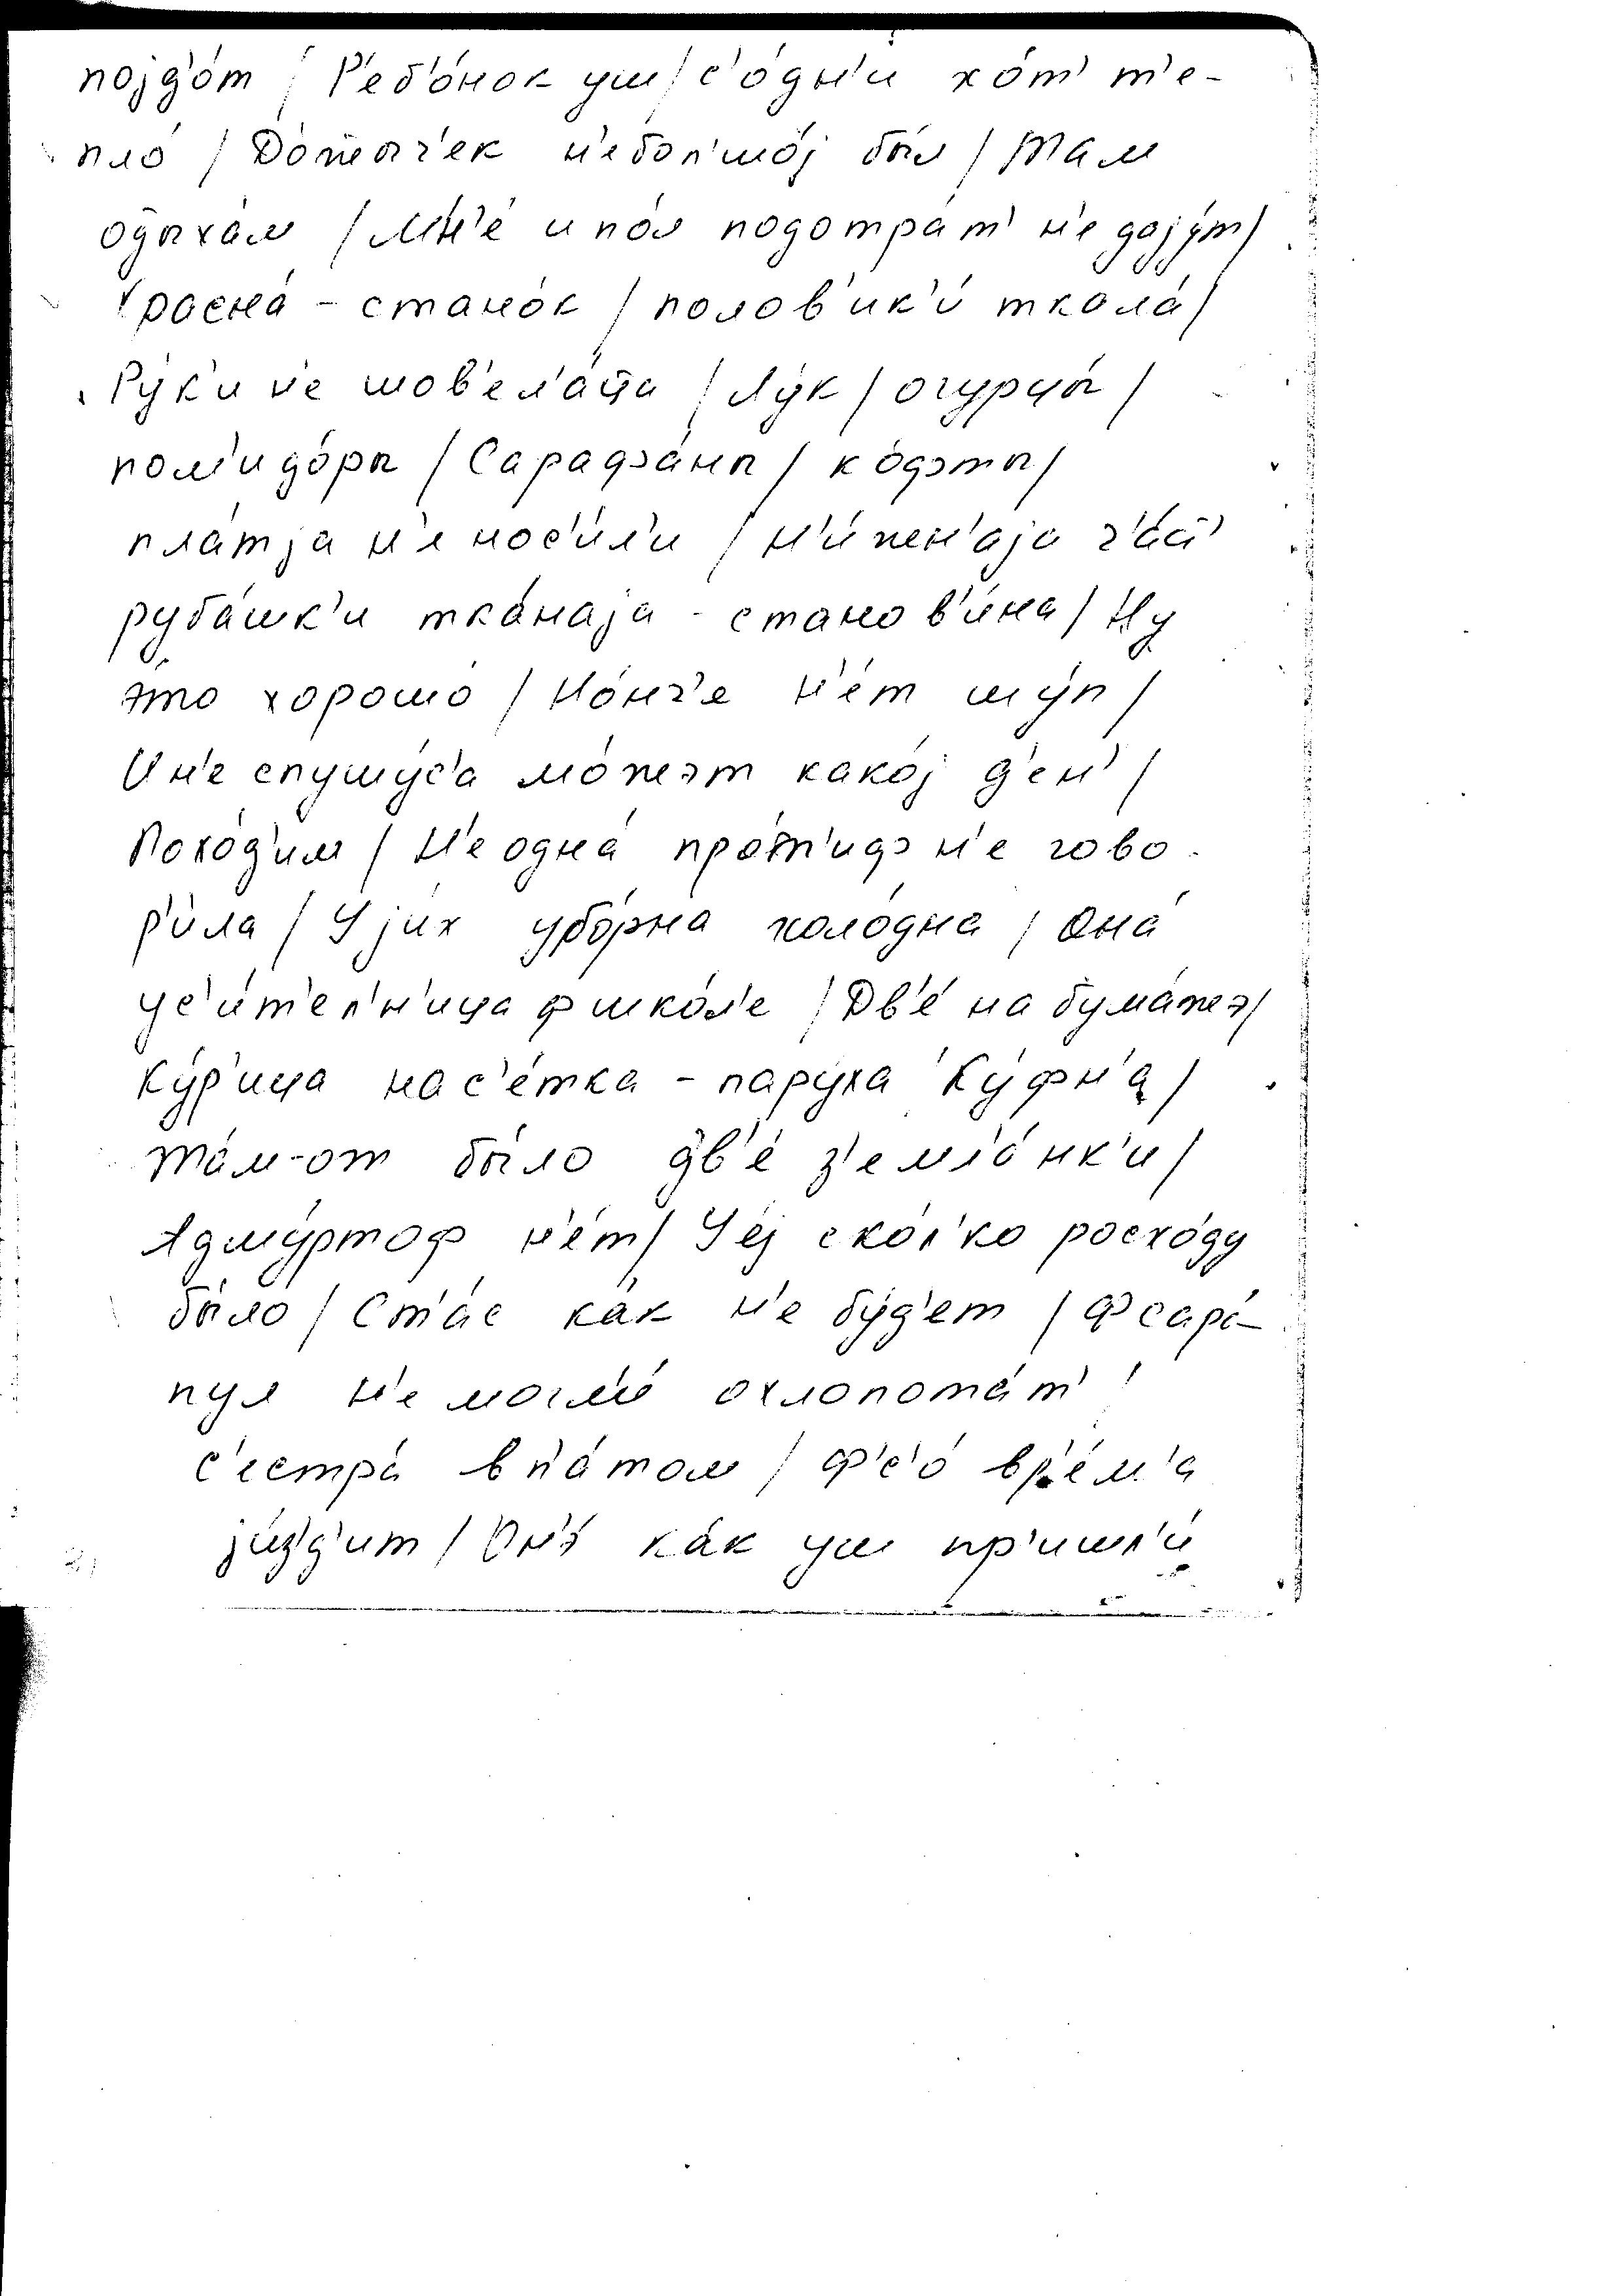 појд'о́т / Р'еб'о́нок уш / с'о́дн'и хо́т' т'е-
пло́ / До́жжыч'ек н'ебол'шо́ј бы́л / Там
одыха́м / Мн'е́ и по́л подотра́т' н'е дају́т /
Кросна́ - стано́к / полов'ик'и́ ткала́ /
Ру́к'и н'е шов'ел'а́ца / Лу́к / огурцы́ /
пом'идо́ры / Сарафа́ны / ко́фты /
пла́тја н'е нос'и́л'и / Н'и́жен'аја ч'а́с'т'
руба́шк'и тка́наја - станов'и́на / Ну
э́то хорошо́ / Но́нч'е н'е́т шу́п /
И н'е спушу́с'а мо́жэт како́ј д'ен' /
Похо́д'им / Н'е одна́ про́т'иф н'е гово-
р'и́ла / У јих убо́рна холо́дна / Она́
уc'и́т'ел'н'ица ф шко́л'е / Дв'е́ на бума́жэ /
Ку́р'ица нас'е́тка - пару́ха Ку́фн'а /
Та́м-от бы́ло дв'е́ з'емл'а́нк'и /
Адму́ртоф н'е́т / У е́ј ско́л'ко росхо́ду
бы́ло / Ст'а́с ка́к н'е бу́д'ет / Ф сара́-
пул н'е могл'и́ охлопота́т' /
с'естра́ в п'а́том / Ф'с'о́ вр'е́м'а
јиз'д'ит / Он'и́ ка́к уш пр'ишл'и́